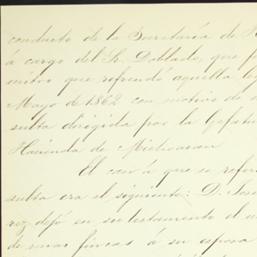 conducto de la Secretaría de H
á cargo del Sr. Doblado, que f
mitro que refrendó aquella le
Mayo de 1862 con motivo de
sulta dirigida por la Gefatu
Hacienda de Michoacan
El caso á que se refer
sulta era el siguiente: D. José
roz dejó en su testamento el u
de unas fincas á su esposa